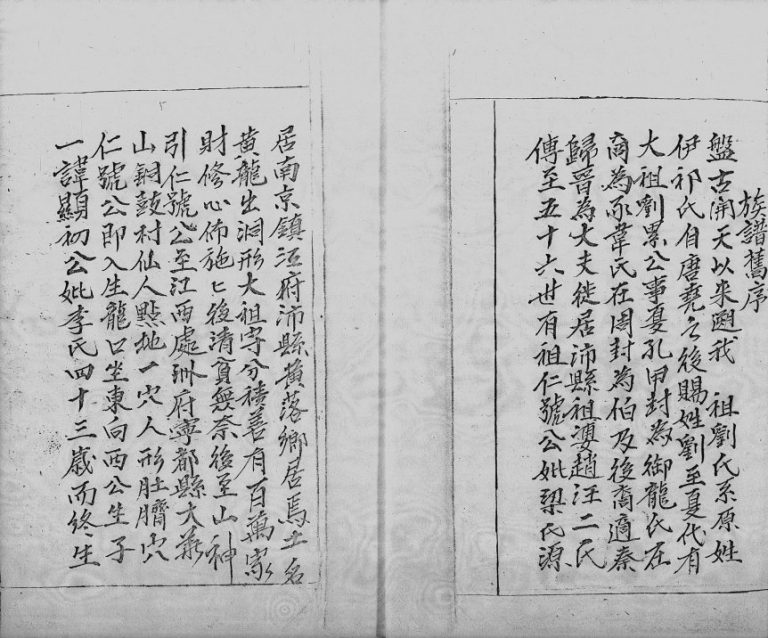 族譜舊序
盤古開天以來遡我 祖劉氏系原姓
伊祁氏自唐堯之後賜姓劉至夏代有
大祖劉累公事夏孔甲封為御龍氏在
商為豕韋氏在周封為伯及後裔適秦
歸晉為大夫徙居沛縣祖婆趙汪二氏
傳至五十六世有祖仁號公妣梁氏源
居南京鎮江府沛縣黃落鄉居馬土名
黃龍出洞形大祖字分積善有百萬家
財修心佈施匕後清貧無奈後至山神
引仁號公至江西處州府寧都縣大
山銅鼓村仙人點地一穴人形肚臍穴
仁號公即入生龍口坐東向西公生子
一諱顯初公妣李氏四十三歲而終生